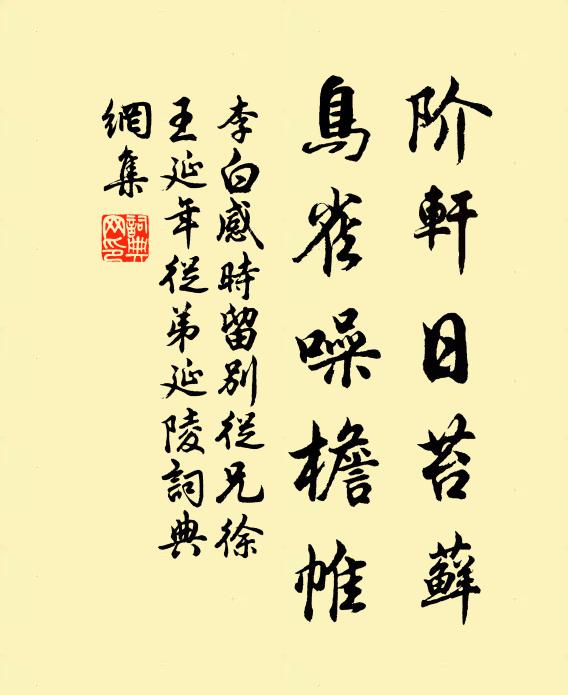 阶軒日苔蘚
鳥雀噪檐帷
李白感時留别從兄徐
王延年從弟延陵詞典
網集
詞典
网印